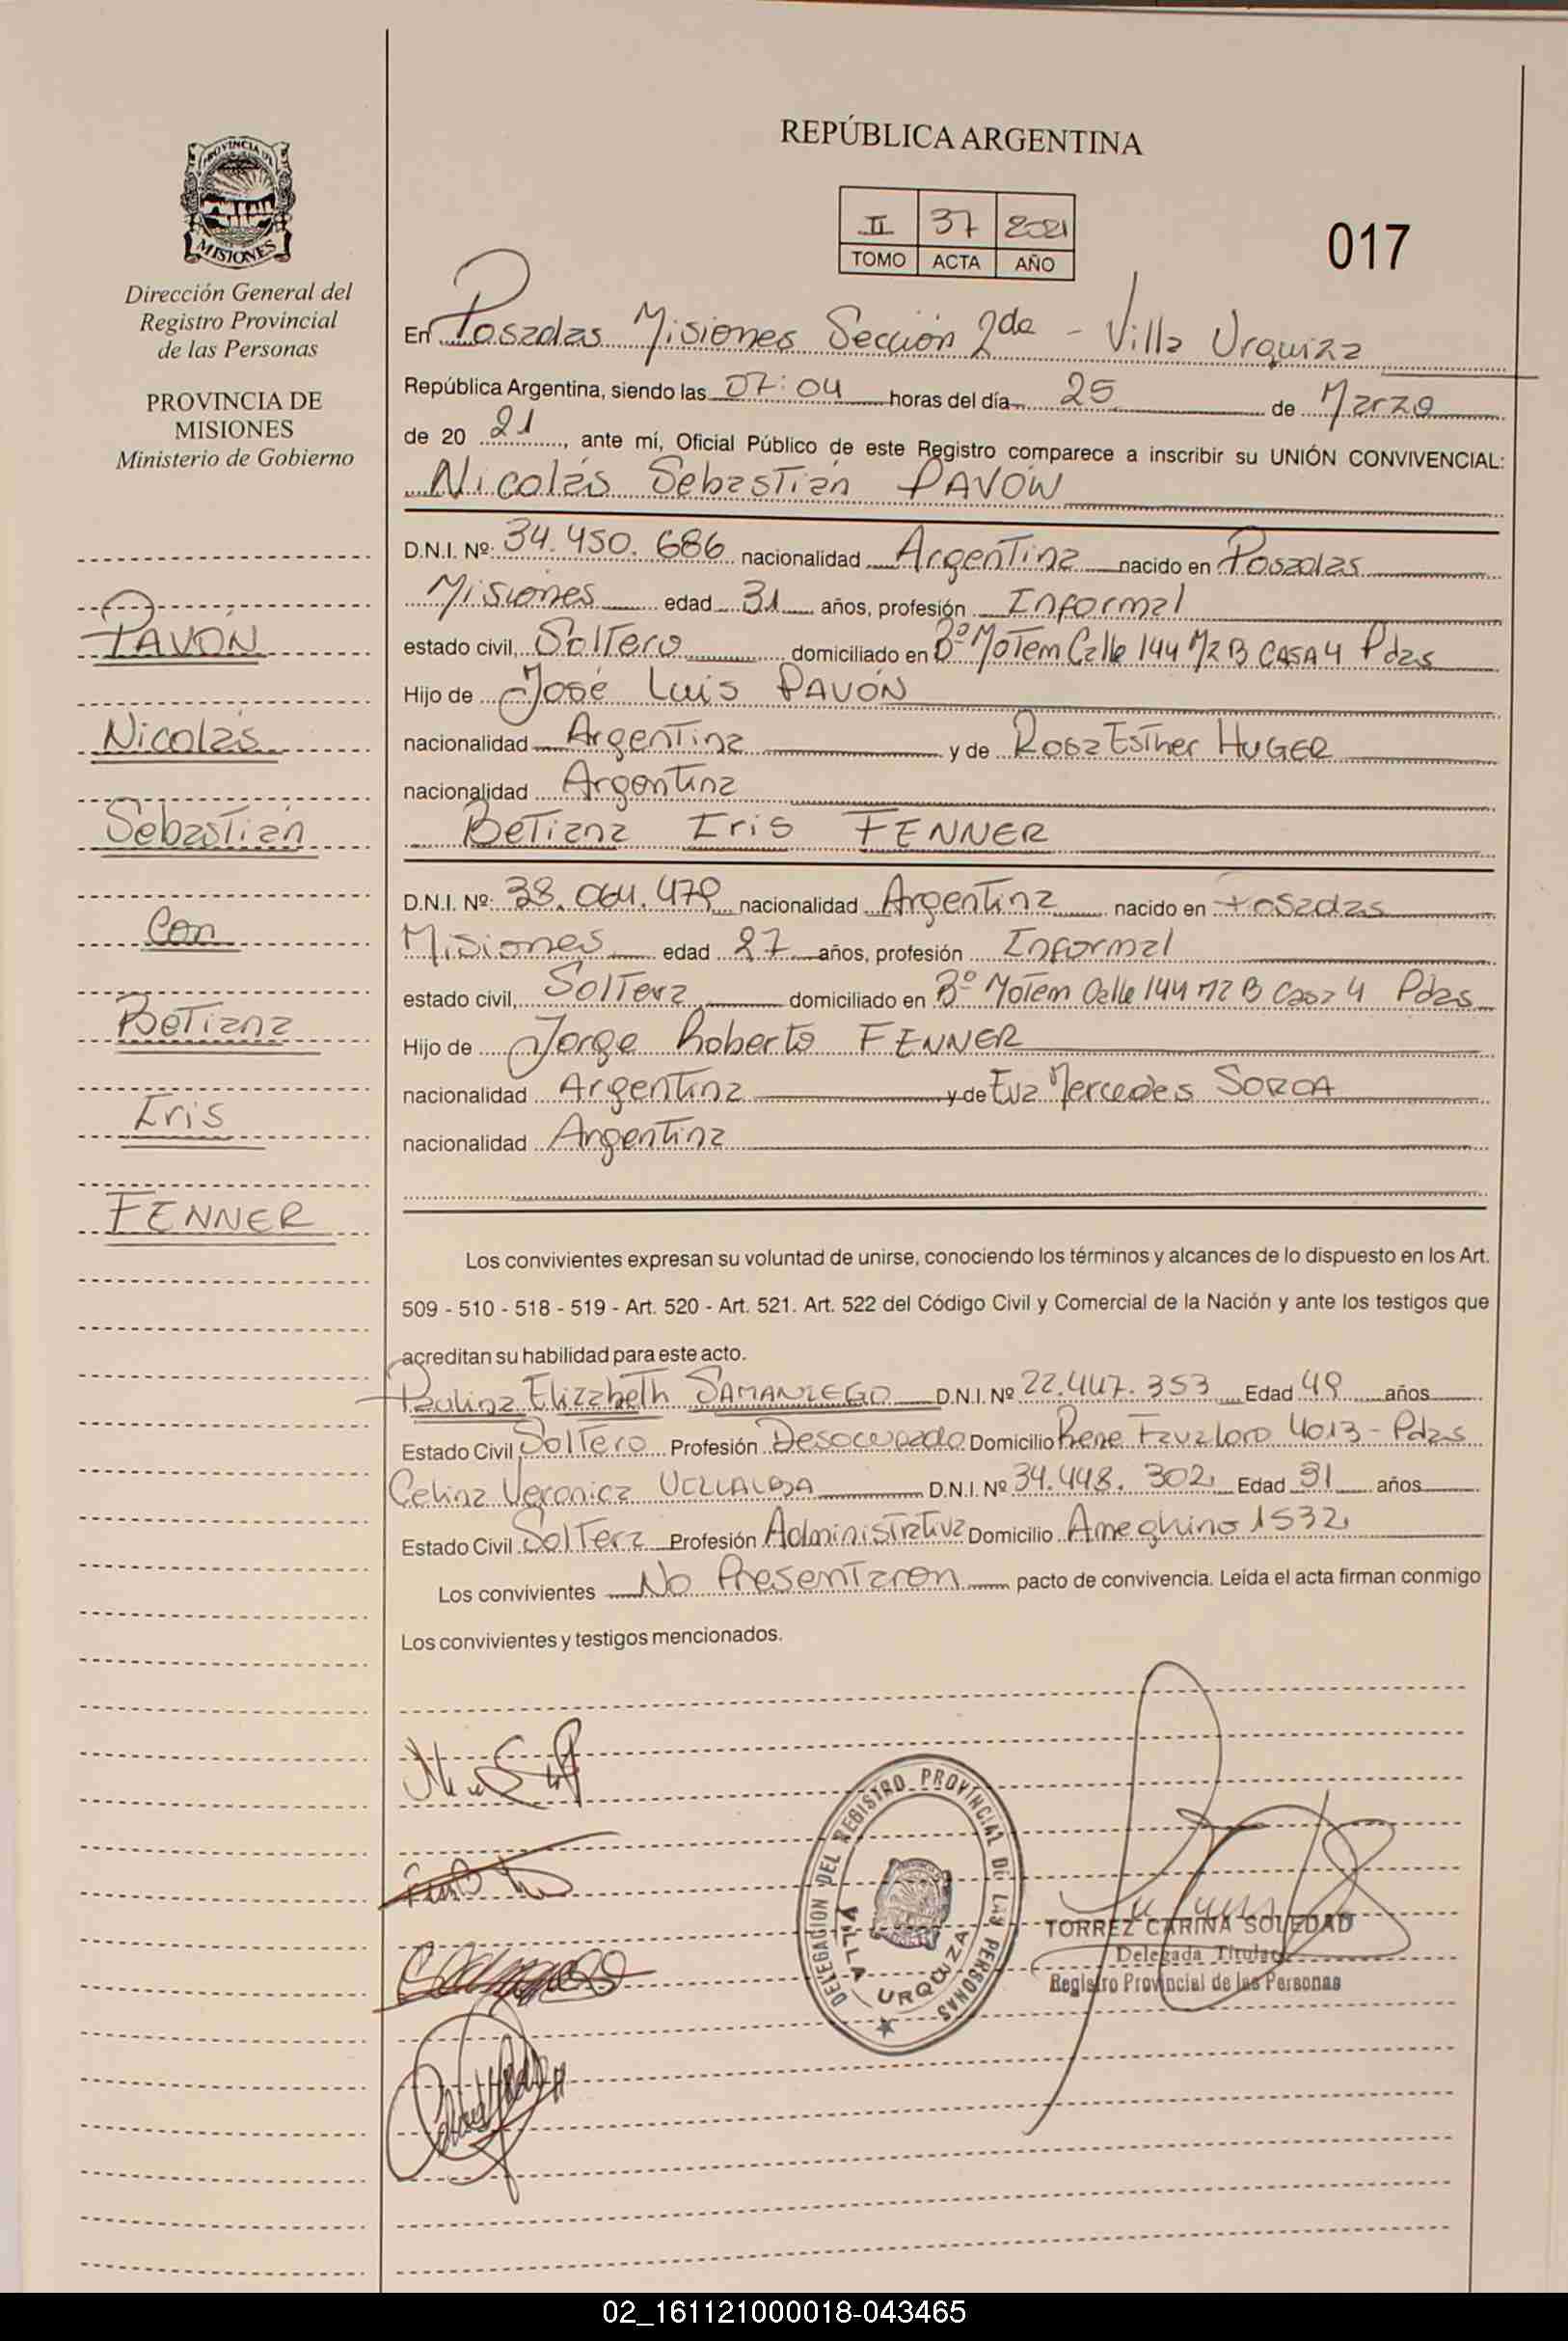 REPÚBLICA ARGENTINA
II 37 2021
TOMO ACTA AÑO
017
PROVINCIA DE
MISIONES
Dirección General del
Registro Provincial
de las Personas
PROVINCIA DE
MISIONES
Ministerio de Gobierno
PAVÓN
Nicolás
Sebastián
Con
Betiana
Iris
FENNER
En Posadas Misiones Sección 2da - Villa Urquiza
República Argentina, siendo las 07:04 horas del día 25 de Marzo
de 20 21, ante mí, Oficial Público de este Registro comparece a inscribir su UNIÓN CONVIVENCIAL:
Nicolás Sebastián PAVÓN
D.N.I. Nº: 34.450.686 nacionalidad Argentina nacido en Posadas
Misiones edad 31 años, profesión Informal
estado civil, Soltero domiciliado en Bº Motem Calle 144 Mz B CASA 4 Pdas
Hijo de José Luis PAVÓN
nacionalidad Argentina y de Rosa Esther HUGER
nacionalidad Argentina
Betiana Iris FENNER
D.N.I. Nº: 38.064.479 nacionalidad Argentina nacido en Posadas
Misiones edad 27 años, profesión Informal
estado civil, Soltera domiciliado en Bº Motem Calle 144 Mz B Casa 4 Pdas
Hijo de Jorge Roberto FENNER
nacionalidad Argentina y de Eva Mercedes
nacionalidad Argentina
Los convivientes expresan su voluntad de unirse, conociendo los términos y alcances de lo dispuesto en los Art.
509 - 510 - 518 - 519 - Art. 520 - Art. 521. Art. 522 del Código Civil y Comercial de la Nación y ante los testigos que
acreditan su habilidad para este acto.
Paulina Elizabeth SAMANIEGO D.N.I. Nº 22.447.353 Edad 49 años
Estado Civil Soltero Profesión Desocupado Domicilio Rene Favaloro 4013 - Pdas
Celina Veronica VILLALBA D.N.I. Nº 34.448.302 Edad 31 años
Estado Civil Soltera Profesión Administrativa Domicilio Ameghino 1532
Los convivientes No Presentaron pacto de convivencia. Leída el acta firman conmigo
Los convivientes y testigos mencionados.
DELEGACION DEL REGISTRO PROVINCIAL DE LAS PERSONAS
VILLA URQUIZA
TORREZ CARINA SOLEDAD
Delegada Titular
Registro Provincial de las Personas
02_161121000018-043465